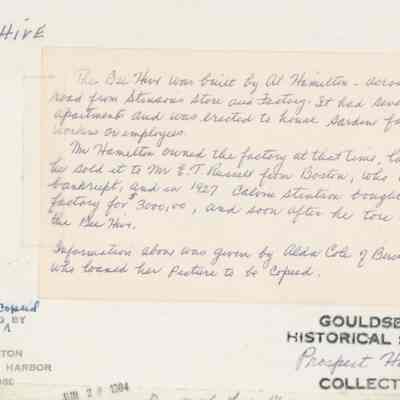 HIVE
The Bee Hive was built by Al Hamilton - across
road from Stinsons Store and Factory. It had seve
apartments and was erected to house Sardine fa
workers or employees.
Mr Hamilton owned the factory at that time, la
he sold it to Mr E. T. Russell from Boston, who
bankrupt, and in 1927 Calvin Stinson bough
factory for $3000,00, and soon after he tore
the Bee Hive.
Information above was given by Alda Cole of
who loaned her Picture to be Copied.
Copied
D BY
A
GOULDSB
HISTORICAL S
Prospect Ha
COLLECT
TON
HARBOR